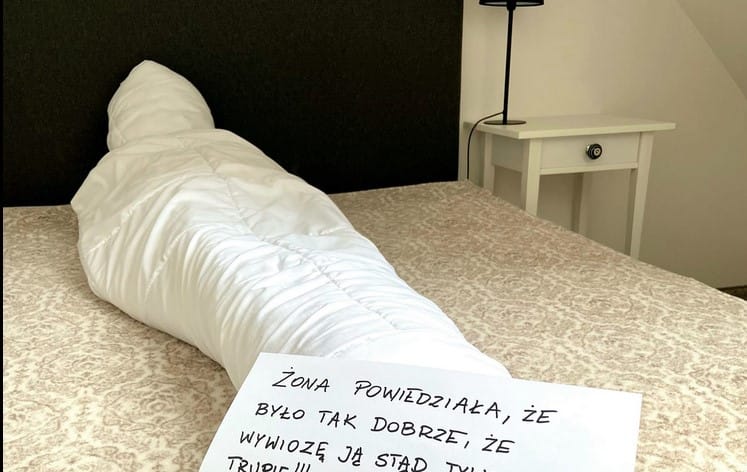 ŻONA POWIEDZIAŁA, ŻE
BYŁO TAK DOBRZE, ŻE
WYWIOZĘ JĄ STĄD
TRUPIE!!!